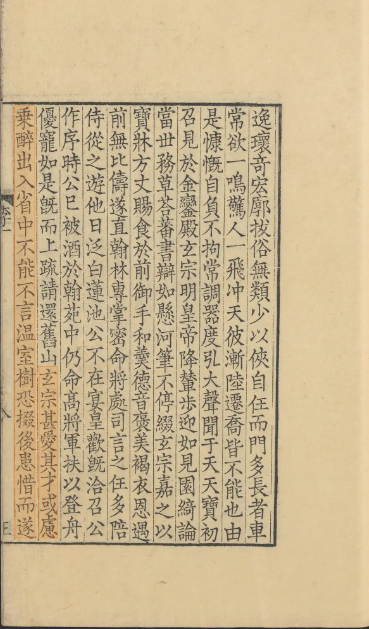 逸瓌奇宏廓拔俗無類少以俠自任而門多長者車
常欲一鳴驚人一飛冲天彼漸陸遷喬皆不能也由
是慷慨自負不拘常調器度弘大聲聞于天天寶初
召見於金鑾殿玄宗明皇帝降輦步迎如見園綺論
當世務草荅蕃書辯如懸河筆不停綴玄宗嘉之以
寶牀方丈賜食於前御手和羹德音褒美褐衣恩遇
前無比儔遂直翰林專掌密命將處司言之任多陪
侍從之遊他日泛白蓮池公不在宴皇歡旣洽召公
作序時公已被酒於翰苑中仍命高將軍扶以登舟
優寵如是旣而上疏請還舊山玄宗甚愛其才或慮
乘醉出入省中不能不言溫室樹恐掇後患惜而遂